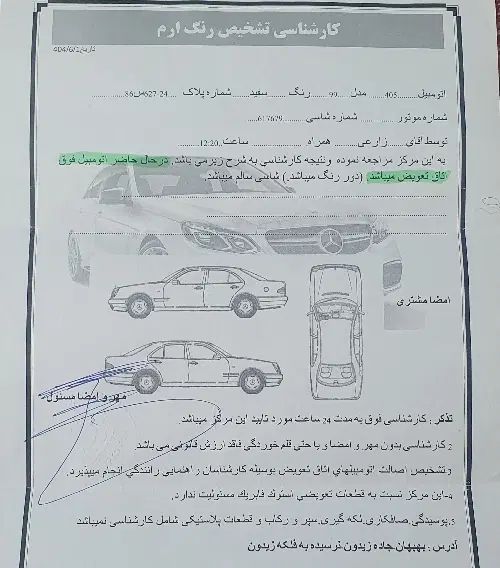 کارشناسی تشخیص رنگ ارم
تاریخ:404/6/1
اتومبیل.......405........ مدل ....99........ رنگ .........سفید......... شماره پلاک ....24-627س86........
شماره موتور .............. شماره شاسی .........617679..........
توسط آقای ........زارعی......... همراه ................ ساعت...12:20........
به این مرکز مراجعه نموده ونتیجه کارشناسی به شرح زیر می باشد. در حال حاضر اتومبیل فوق
اتاق تعویض میباشد (دور رنگ میباشد.) شاسی سالم میباشد.
امضا مشتری
مهر و امضا مسئول
تذکر : کارشناسی فوق به مدت 24 ساعت مورد تایید این مرکز میباشد.
2 کارشناسی بدون مهر و امضا و یا حتی قلم خوردگی فاقد ارزش قانونی می باشد.
و تشخیص اصالت اتومبیلهای اتاق تعویض بوسیله کارشناسان راهنمایی رانندگی انجام میپذیرد.
4-این مرکز نسبت به قطعات تعویضی استوک فابریک مسئولیت ندارد.
5.پوسیدگی، صافکاری، لکه گیری، سپر و رکاب و قطعات پلاستیکی شامل کارشناسی نمیباشد
آدرس : بهبهان جاده زیدون نرسیده به فلکه زیدون